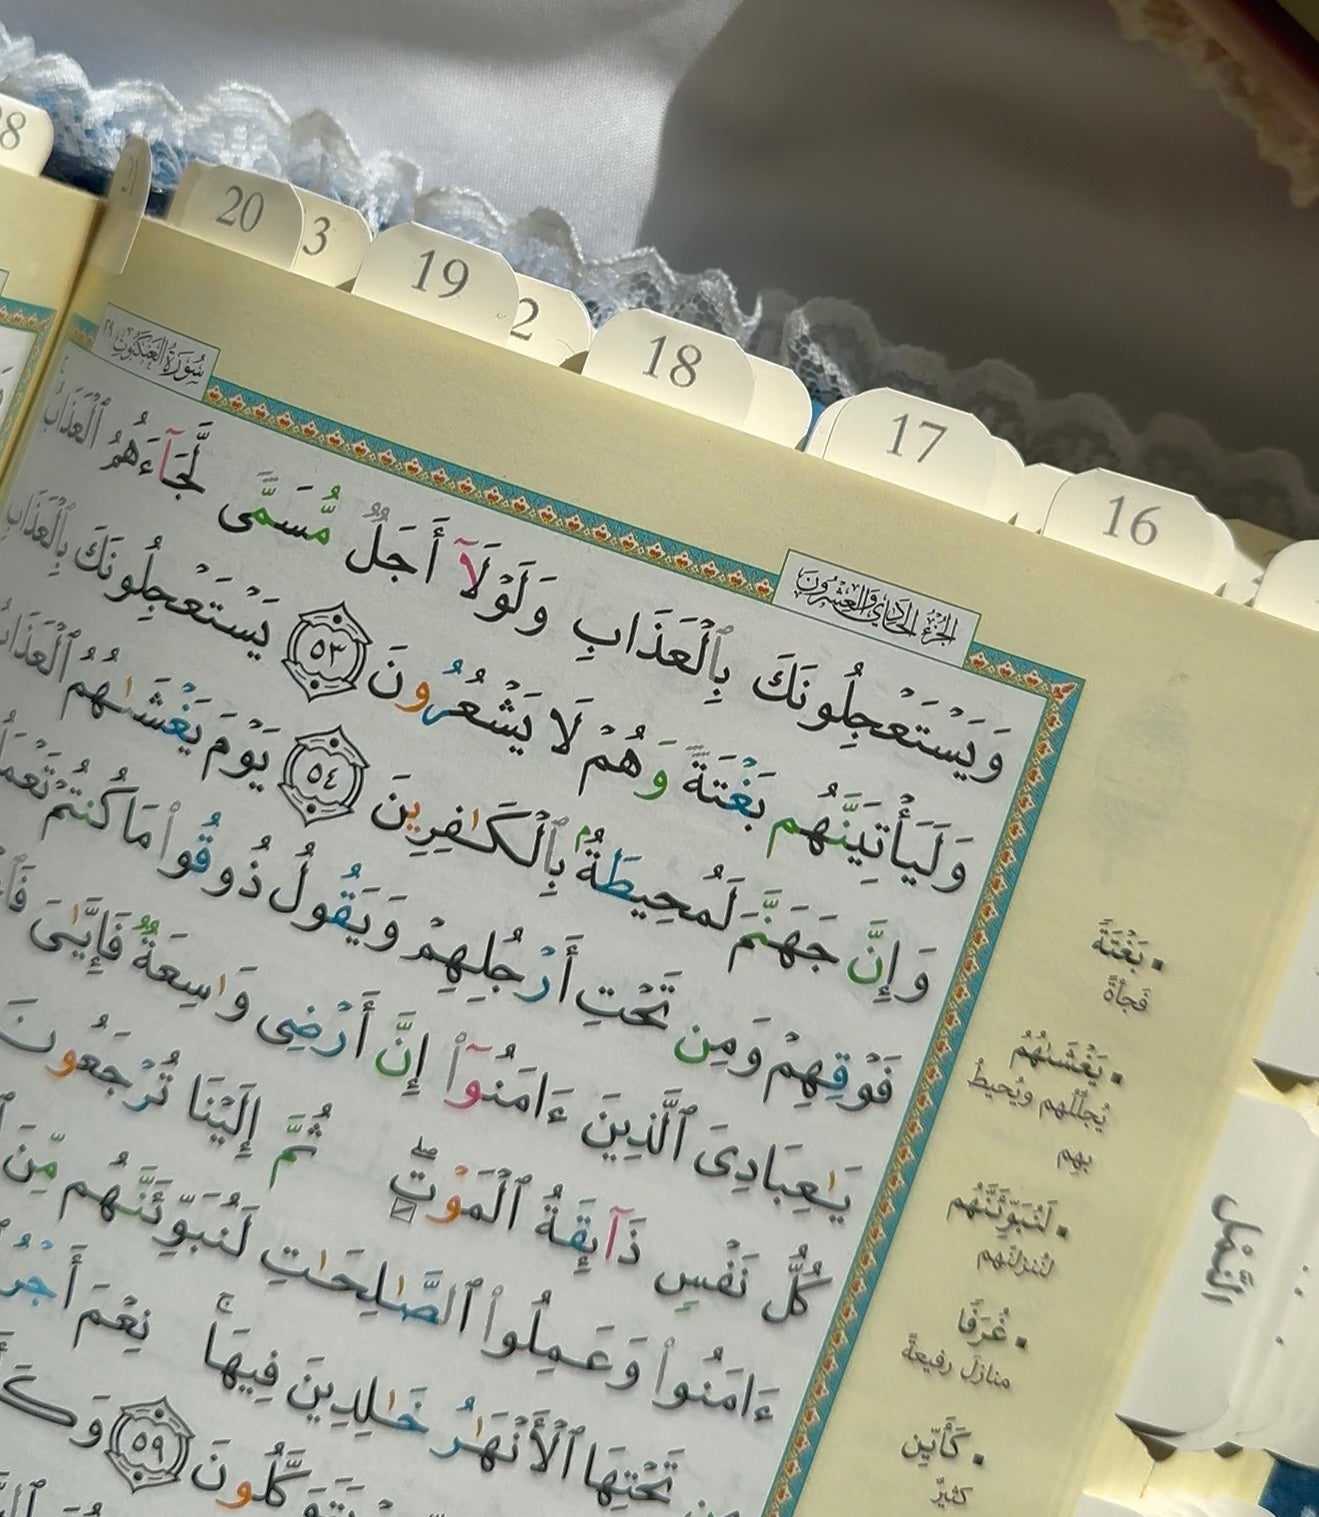 28
21
20
3
19
2
18
17
16
سُورَةُ العَنكَبُوتِ ٢٩
الجُزْءُ الحَادِي وَالعِشْرُونَ
وَيَسْتَعْجِلُونَكَ بِٱلْعَذَابِ وَلَوْلَآ أَجَلٌ مُّسَمًّى لَّجَآءَهُمُ ٱلْعَذَابُ
وَلَيَأْتِيَنَّهُم بَغْتَةً وَهُمْ لَا يَشْعُرُونَ ٥٣ يَسْتَعْجِلُونَكَ بِٱلْعَذَابِ
وَإِنَّ جَهَنَّمَ لَمُحِيطَةٌۢ بِٱلْكَـٰفِرِينَ ٥٤ يَوْمَ يَغْشَىٰهُمُ ٱلْعَذَابُ
فَوْقِهِمْ وَمِن تَحْتِ أَرْجُلِهِمْ وَيَقُولُ ذُوقُوا۟ مَا كُنتُمْ
يَـٰعِبَادِىَ ٱلَّذِينَ ءَامَنُوٓا۟ إِنَّ أَرْضِى وَٰسِعَةٌ فَإِيَّـٰىَ
كُلُّ نَفْسٍ ذَآئِقَةُ ٱلْمَوْتِ ۖ ثُمَّ إِلَيْنَا تُرْجَعُونَ
ءَامَنُوا۟ وَعَمِلُوا۟ ٱلصَّـٰلِحَـٰتِ لَنُبَوِّئَنَّهُم مِّنَ
تَحْتِهَا ٱلْأَنْهَـٰرُ خَـٰلِدِينَ فِيهَا ۚ نِعْمَ أَجْرُ
يَتَوَكَّلُونَ ٥٩
• بَغْتَةً
فَجأةً
• يَغْشَىٰهُمُ
يُجلِّلُهم ويُحيطُ
بِهِم
• لَنُبَوِّئَنَّهُم
لنُنزِلَنَّهم
• غُرَفًا
منازلَ رفيعةً
• كَأَيِّن
كثيرٌ
النَّمْل